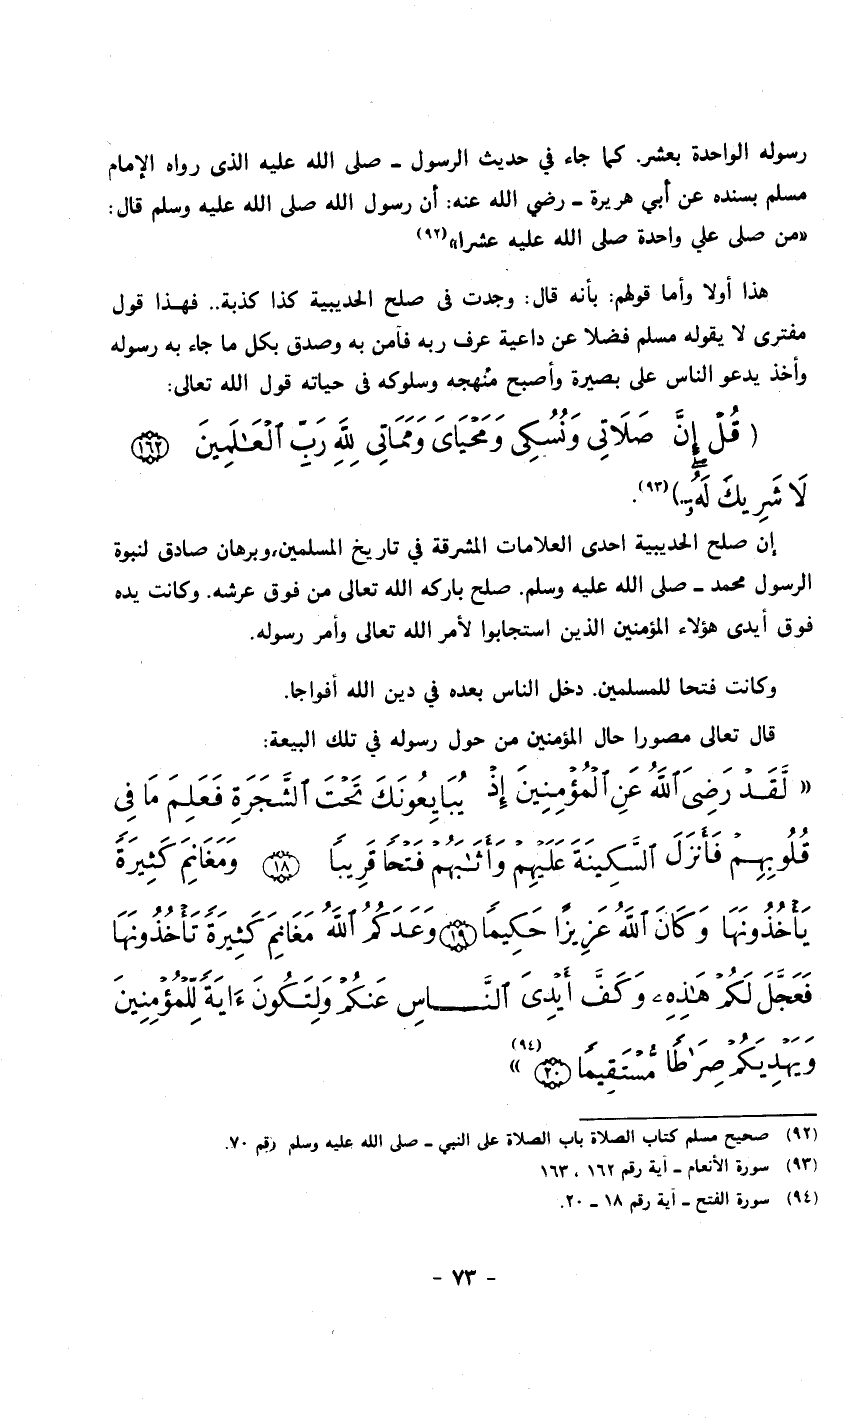 رسوله الواحدة بعشر. كما جاء في حديث الرسول ـ صلى الله عليه الذى رواه الإمام
مسلم بسنده عن أبي هريرة ـ رضي الله عنه: أن رسول الله صلى الله عليه وسلم قال:
«من صلى علي واحدة صلى الله عليه عشرا»(٩٢)
هذا أولا وأما قولهم: بأنه قال: وجدت فى صلح الحديبية كذا كذبة.. فهذا قول
مفترى لا يقوله مسلم فضلا عن داعية عرف ربه فآمن به وصدق بكل ما جاء به رسوله
وأخذ يدعو الناس على بصيرة وأصبح منُهجه وسلوكه فى حياته قول الله تعالى:
( قُلْ إِنَّ صَلَاتِى وَنُسُكِى وَمَحْيَاىَ وَمَمَاتِى لِلَّهِ رَبِّ ٱلْعَـٰلَمِينَ ١٦٢
لَا شَرِيكَ لَهُۥۖ..)(٩٣).
إن صلح الحديبية احدى العلامات المشرقة في تاريخ المسلمين،وبرهان صادق لنبوة
الرسول محمد ـ صلى الله عليه وسلم. صلح باركه الله تعالى من فوق عرشه. وكانت يده
فوق أيدى هؤلاء المؤمنين الذين استجابوا لأمر الله تعالى وأمر رسوله.
وكانت فتحا للمسلمين. دخل الناس بعده في دين الله أفواجا.
قال تعالى مصورا حال المؤمنين من حول رسوله في تلك البيعة:
« لَّقَدْ رَضِىَ ٱللَّهُ عَنِ ٱلْمُؤْمِنِينَ إِذْ يُبَايِعُونَكَ تَحْتَ ٱلشَّجَرَةِ فَعَلِمَ مَا فِى
قُلُوبِهِمْ فَأَنزَلَ ٱلسَّكِينَةَ عَلَيْهِمْ وَأَثَـٰبَهُمْ فَتْحًا قَرِيبًا ١٨ وَمَغَانِمَ كَثِيرَةً
يَأْخُذُونَهَا وَكَانَ ٱللَّهُ عَزِيزًا حَكِيمًا ١٩ وَعَدَكُمُ ٱللَّهُ مَغَانِمَ كَثِيرَةً تَأْخُذُونَهَا
فَعَجَّلَ لَكُمْ هَـٰذِهِۦ وَكَفَّ أَيْدِىَ ٱلنَّاسِ عَنكُمْ وَلِتَكُونَ ءَايَةً لِّلْمُؤْمِنِينَ
وَيَهْدِيَكُمْ صِرَٰطًا مُّسْتَقِيمًا ٢٠ »(٩٤)
(٩٢) صحيح مسلم كتاب الصلاة باب الصلاة على النبي ـ صلى الله عليه وسلم رقم ٧٠.
(٩٣) سورة الأنعام ـ آية رقم ١٦٢ ، ١٦٣
(٩٤) سورة الفتح ـ آية رقم ١٨ ـ ٢٠.
- ٧٣ -